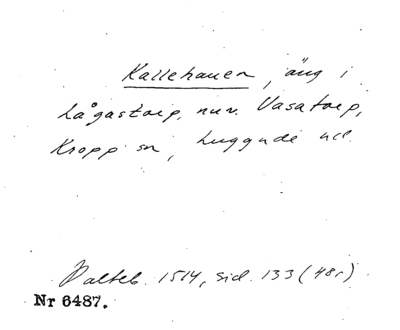 Kallehauen, äng i
Lågastorp, nuv. Vasatorp,
Kropp sn, Luggude hd.
Palteb. 1514, sid. 133 (48r)
Nr 6487.